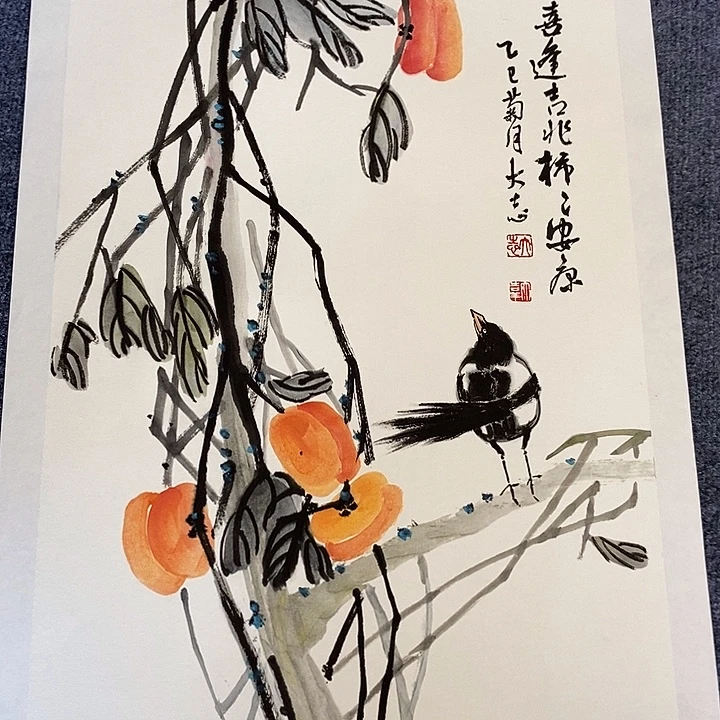 喜逢吉兆柿〻安康
乙巳菊月大志